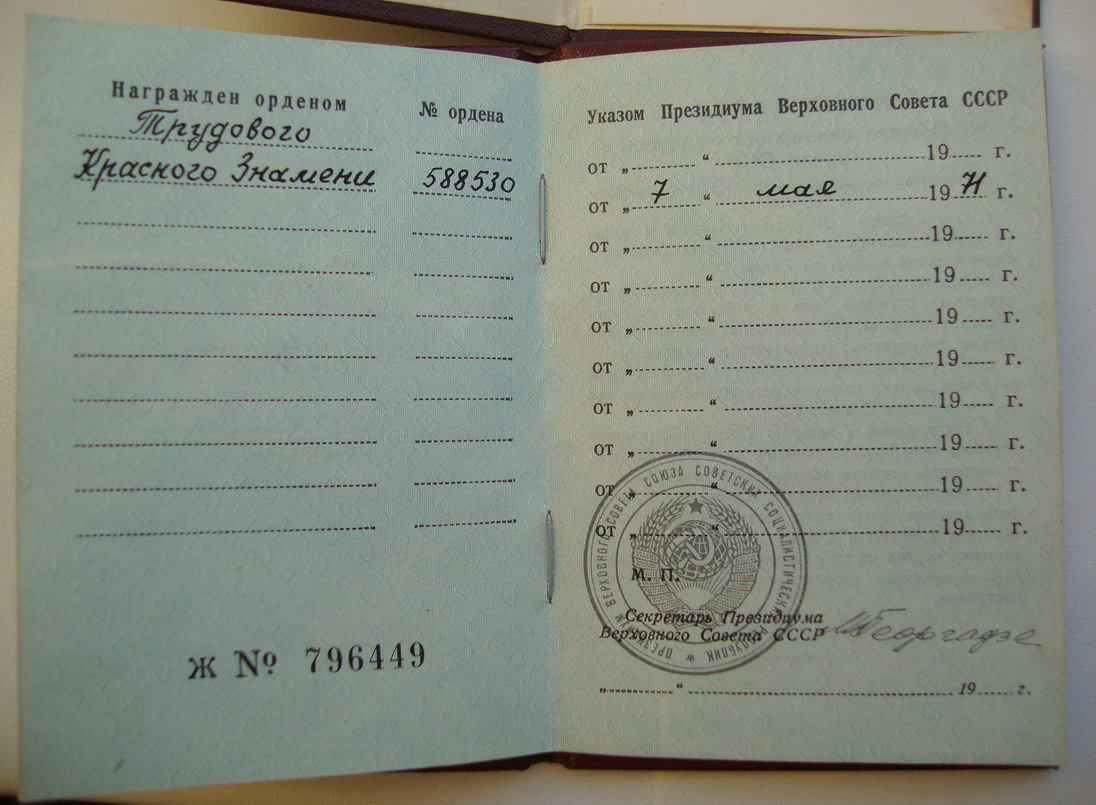 Награжден орденом № ордена
Трудового
Красного Знамени 588530
Ж № 796449
Указом Президиума Верховного Совета СССР
от „ “ 19 г.
от „ 7 “ мая 1971 г.
от „ “ 19 г.
от „ “ 19 г.
от „ “ 19 г.
от „ “ 19 г.
от „ “ 19 г.
от „ “ 19 г.
от „ “ 19 г.
от „ “ 19 г.
ПРЕЗИДИУМ ВЕРХОВНОГО СОВЕТА СОЮЗА СОВЕТСКИХ СОЦИАЛИСТИЧЕСКИХ РЕСПУБЛИК *
М. П.
Секретарь Президиума
Верховного Совета СССР М Георгадзе
„ “ 19 г.